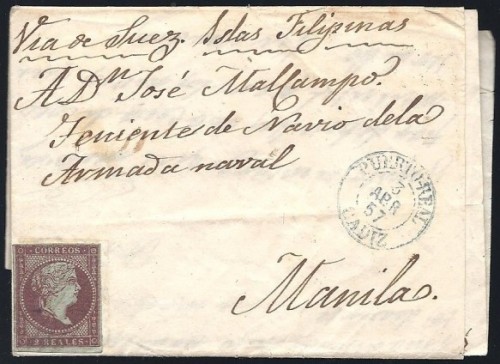 Via de Suez. Islas Filipinas
A Dn José Mallampo.
Teniente de Navio dela
Armada naval
PUERTO-REAL
3
ABR
57
CADIZ
Manila.
CORREOS
2 REALES